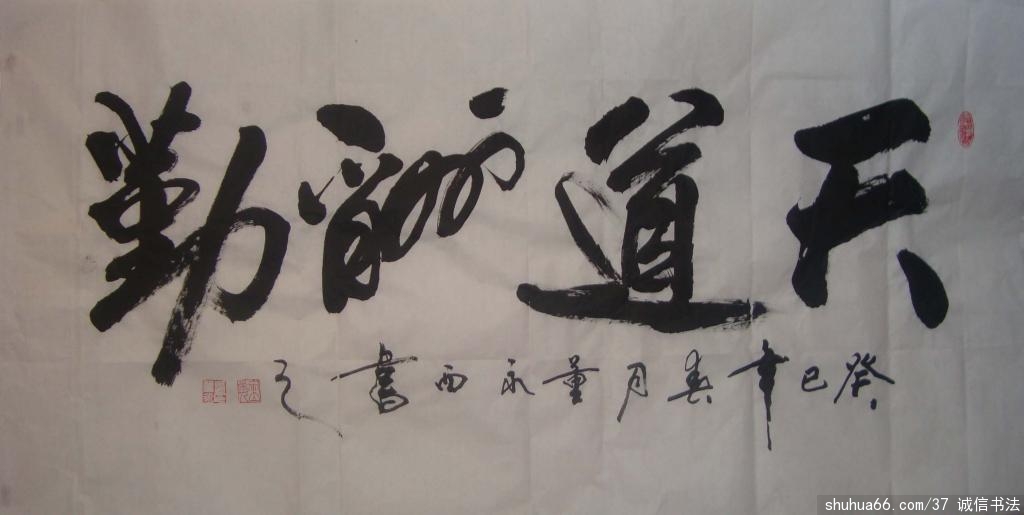 天道酬勤
癸巳年春月董永西書之
shuhua66.com/37 诚信书法